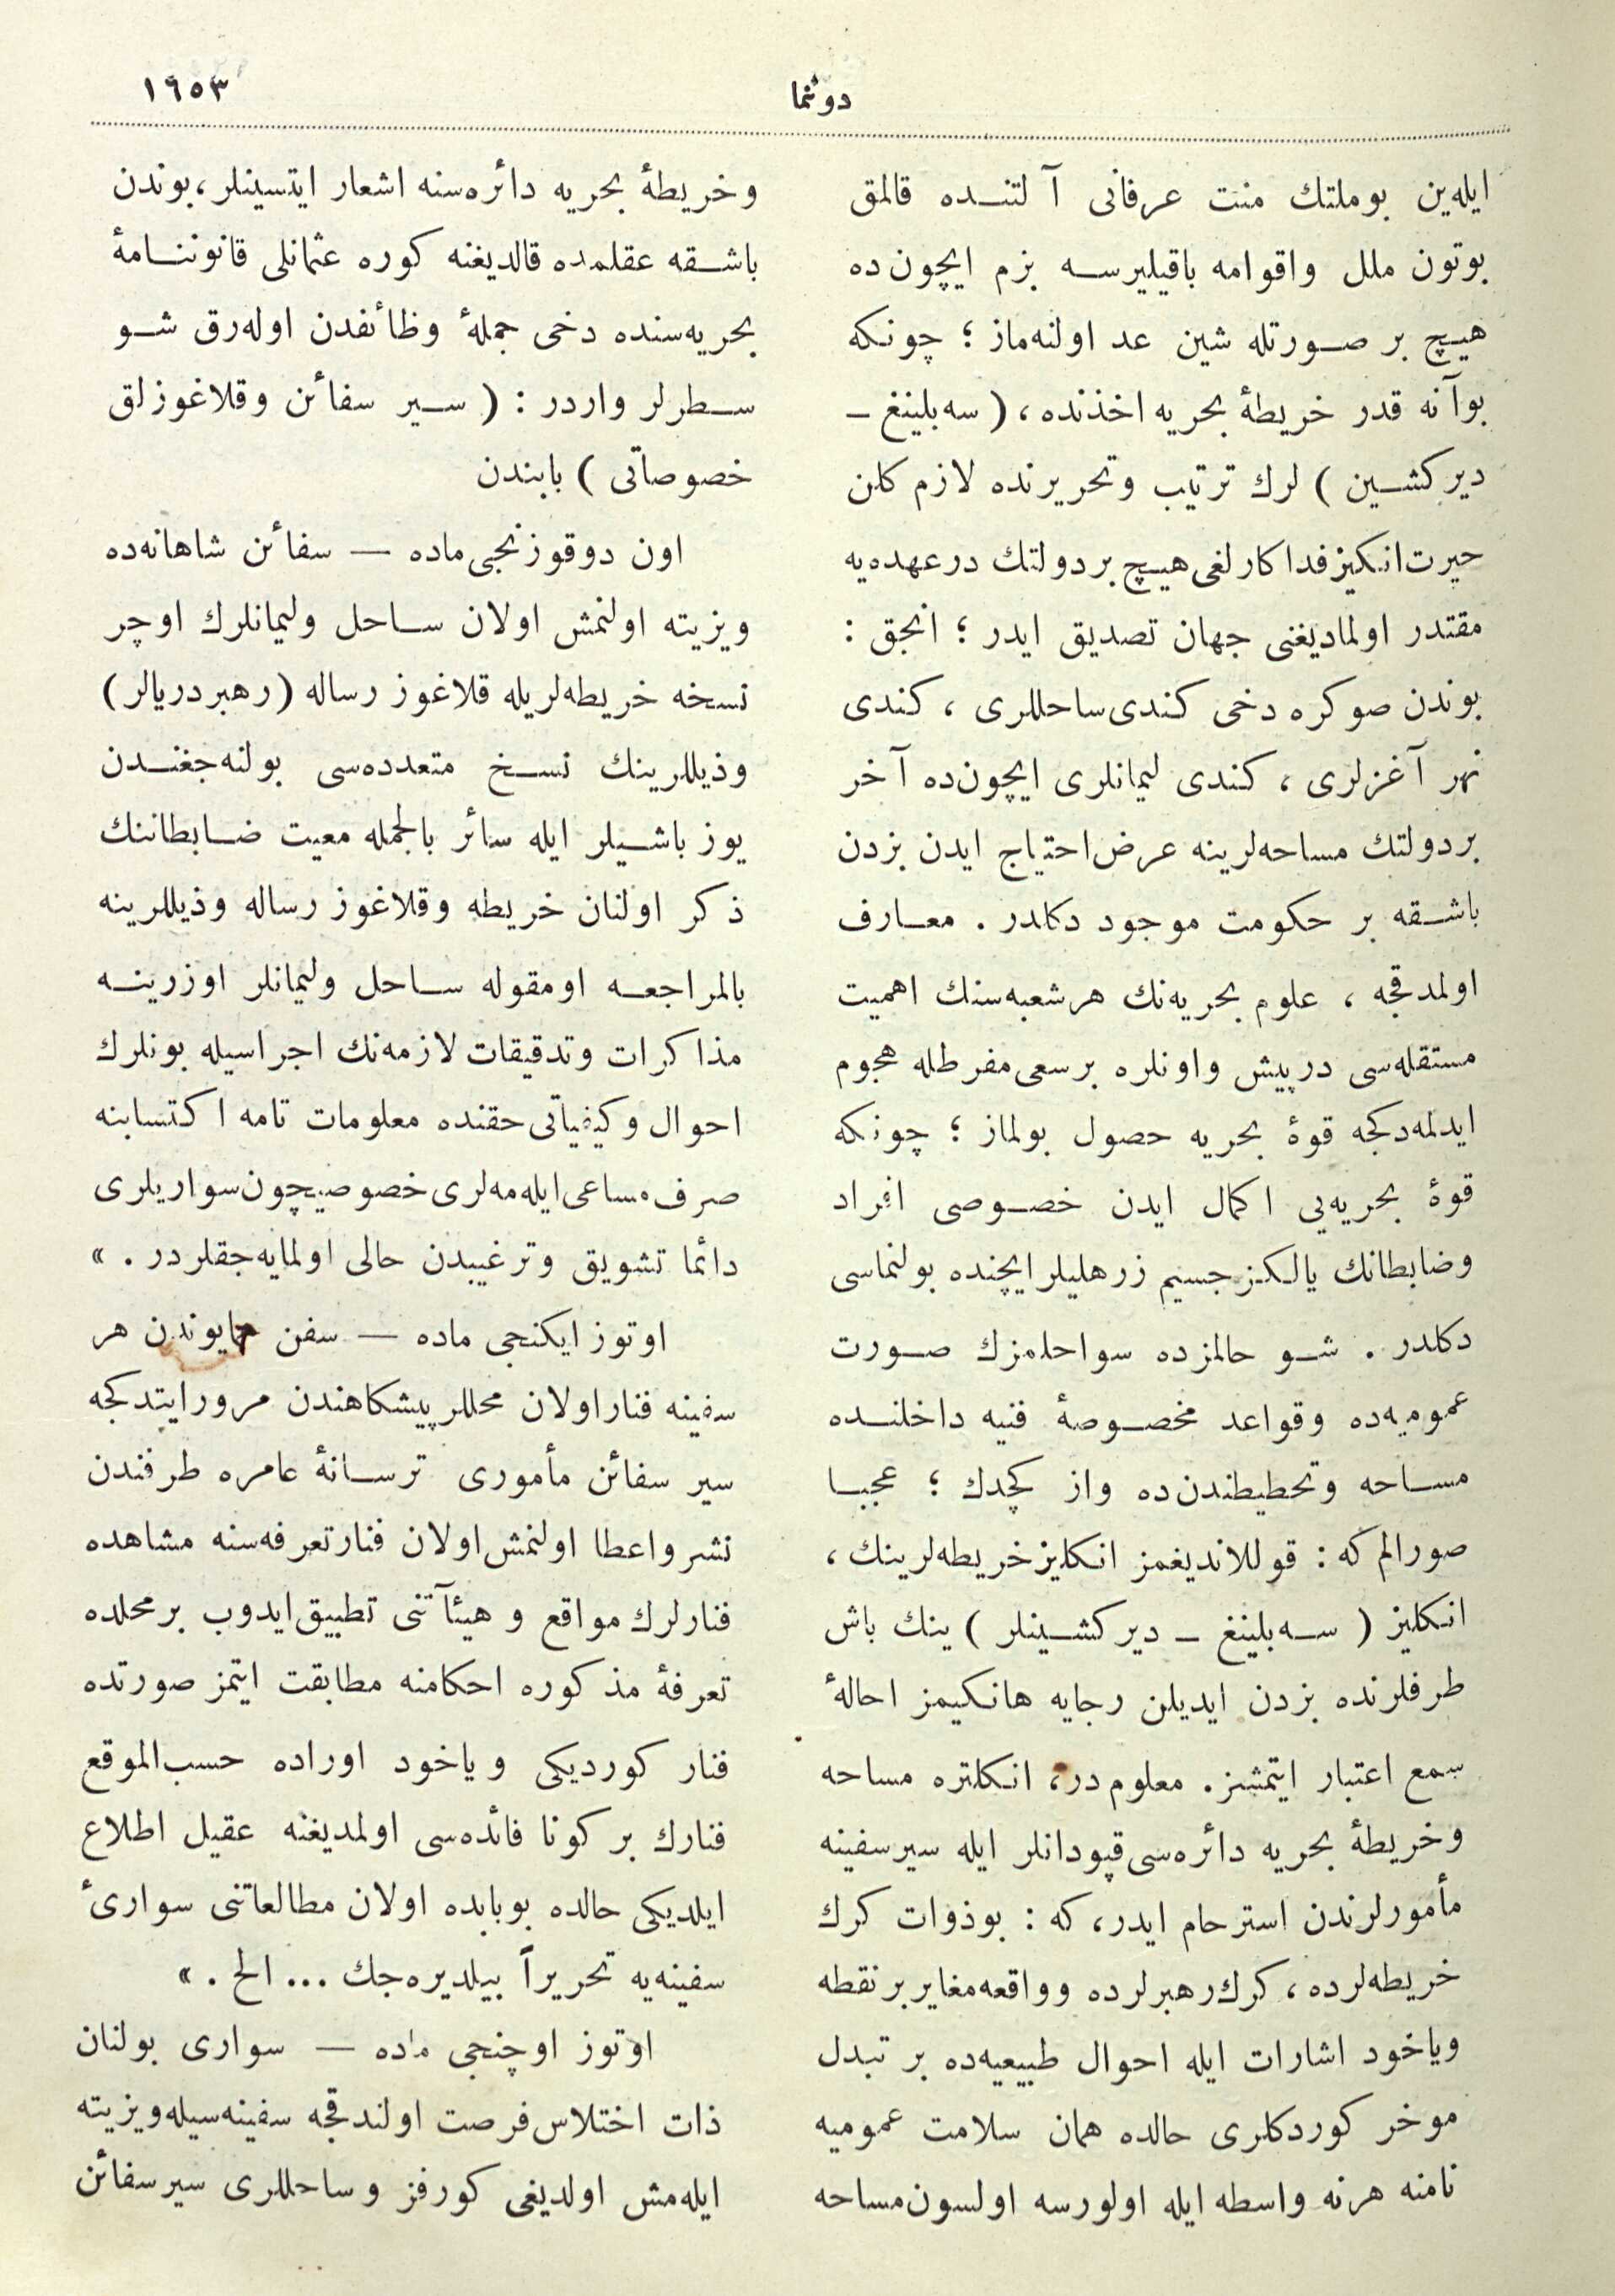 دوننما
١٩٥٣
ايله‌ين بوملتك منت عرفانى آلتنده قالمق
بوتون ملل واقوامه باقيليرسه بزم ايچون‌ده
هيچ بر صورتله شين عد اولنه‌ماز ؛ چونكه
بوآنه قدر خريطۀ بحريه اخذنده ، ( سه‌بلينغ ـ
ديركشين ) لرك ترتيب وتحريرنده لازم كلن
حيرت‌انكيز فداكارلغى هيچ بر دولتك درعهده‌يه
مقتدر اولماديغنى جهان تصديق ايدر ؛ انجق :
بوندن صوكره دخى كندى ساحللرى ، كندى
نهر آغزلرى ، كندى ليمانلرى ايچون‌ده آخر
بر دولتك مساحه‌لرينه عرض احتياج ايدن بزدن
باشقه بر حكومت موجود دكلدر . معارف
اولمدقجه ، علوم بحريه‌نك هرشعبه‌سنك اهميت
مستقله‌سى درپيش واونلره برسعى مفرطله هجوم
ايدلمه‌دكجه قوۀ بحريه حصول بولماز ؛ چونكه
قوۀ بحريه‌يى اكمال ايدن خصوصى افراد
وضابطانك يالكز جسيم زرهليلر ايچنده بولنماسى
دكلدر . شو حالمزده سواحلمزك صورت
عموميه‌ده وقواعد مخصوصۀ فنيه داخلنده
مساحه وتخطيطندن‌ده واز كچدك ؛ عجبا
صورالم كه : قوللانديغمز انكليز خريطه‌لرينك ،
انكليز ( سه‌بلينغ ـ ديركشينلر ) ينك باش
طرفلرنده بزدن ايديلن رجايه هانكيمز احالۀ
سمع اعتبار ايتمشز . معلوم‌در، انكلتره مساحه
وخريطۀ بحريه دائره‌سى قپودانلر ايله سيرسفينه
مأمورلرندن استرحام ايدر، كه : بوذوات كرك
خريطه‌لرده ، كرك رهبرلرده وواقعه مغاير بر نقطه
وياخود اشارات ايله احوال طبيعيه‌ده بر تبدل
موخر كوردكلرى حالده همان سلامت عموميه
نامنه هرنه واسطه ايله اولورسه اولسون مساحه
وخريطۀ بحريه دائره‌سنه اشعار ايتسينلر ، بوندن
باشقه عقلمده قالديغنه كوره عثمانلى قانوننامۀ
بحريه‌سنده دخى جملۀ وظائفدن اوله‌رق شو
سطرلر واردر : ( سير سفائن وقلاغوزلق
خصوصاتى ) بابندن
اون دوقوزنجى ماده — سفائن شاهانه‌ده
ويزيته اولنمش اولان ساحل وليمانلرك اوچر
نسخه خريطه‌لريله قلاغوز رساله (رهبر دريالر)
وذيللرينك نسخ متعدده‌سى بولنه‌جغندن
يوزباشيلر ايله سائر بالجمله معيت ضابطاننك
ذكر اولنان خريطه وقلاغوز رساله وذيللرينه
بالمراجعه اومقوله ساحل وليمانلر اوزرينه
مذاكرات وتدقيقات لازمه‌نك اجراسيله بونلرك
احوال وكيفياتى حقنده معلومات تامه اكتسابنه
صرف مساعى ايله‌مه‌لرى خصوصيچون سواريلرى
دائما تشويق وترغيبدن خالى اولمايه‌جقلردر . »
اوتوز ايكنجى ماده — سفن همايوندن هر
سفينه فنار اولان محللر پيشكاهندن مرور ايتدكجه
سير سفائن مأمورى ترسانۀ عامره طرفندن
نشر واعطا اولنمش اولان فنارتعرفه‌سنه مشاهده
فنارلرك مواقع و هيئآتنى تطبيق ايدوب بر محلده
تعرفۀ مذكوره احكامنه مطابقت ايتمز صورتده
فنار كورديكى وياخود اوراده حسب‌الموقع
فنارك بر كونا فائده‌سى اولمديغنه عقيل اطلاع
ايلديكى حالده بوبابده اولان مطالعاتنى سوارئ
سفينه‌يه تحريراً بيلديره‌جك ... الخ . »
اوتوز اوچنجى ماده — سوارى بولنان
ذات اختلاس فرصت اولندقجه سفينه‌سيله ويزيته
ايله‌مش اولديغى كورفز وساحللرى سيرسفائن